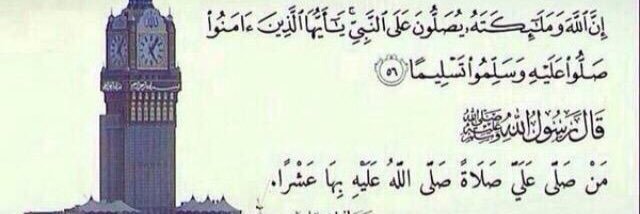 إِنَّ ٱللَّهَ وَمَلَـٰٓئِكَتَهُۥ يُصَلُّونَ عَلَى ٱلنَّبِىِّ ۚ يَـٰٓأَيُّهَا ٱلَّذِينَ ءَامَنُوا۟
صَلُّوا۟ عَلَيْهِ وَسَلِّمُوا۟ تَسْلِيمًا ٥٦
قَالَ رَسُولُ اللَّهِ ﷺ
مَنْ صَلَّى عَلَيَّ صَلَاةً صَلَّى اللَّهُ عَلَيْهِ بِهَا عَشْرًا.